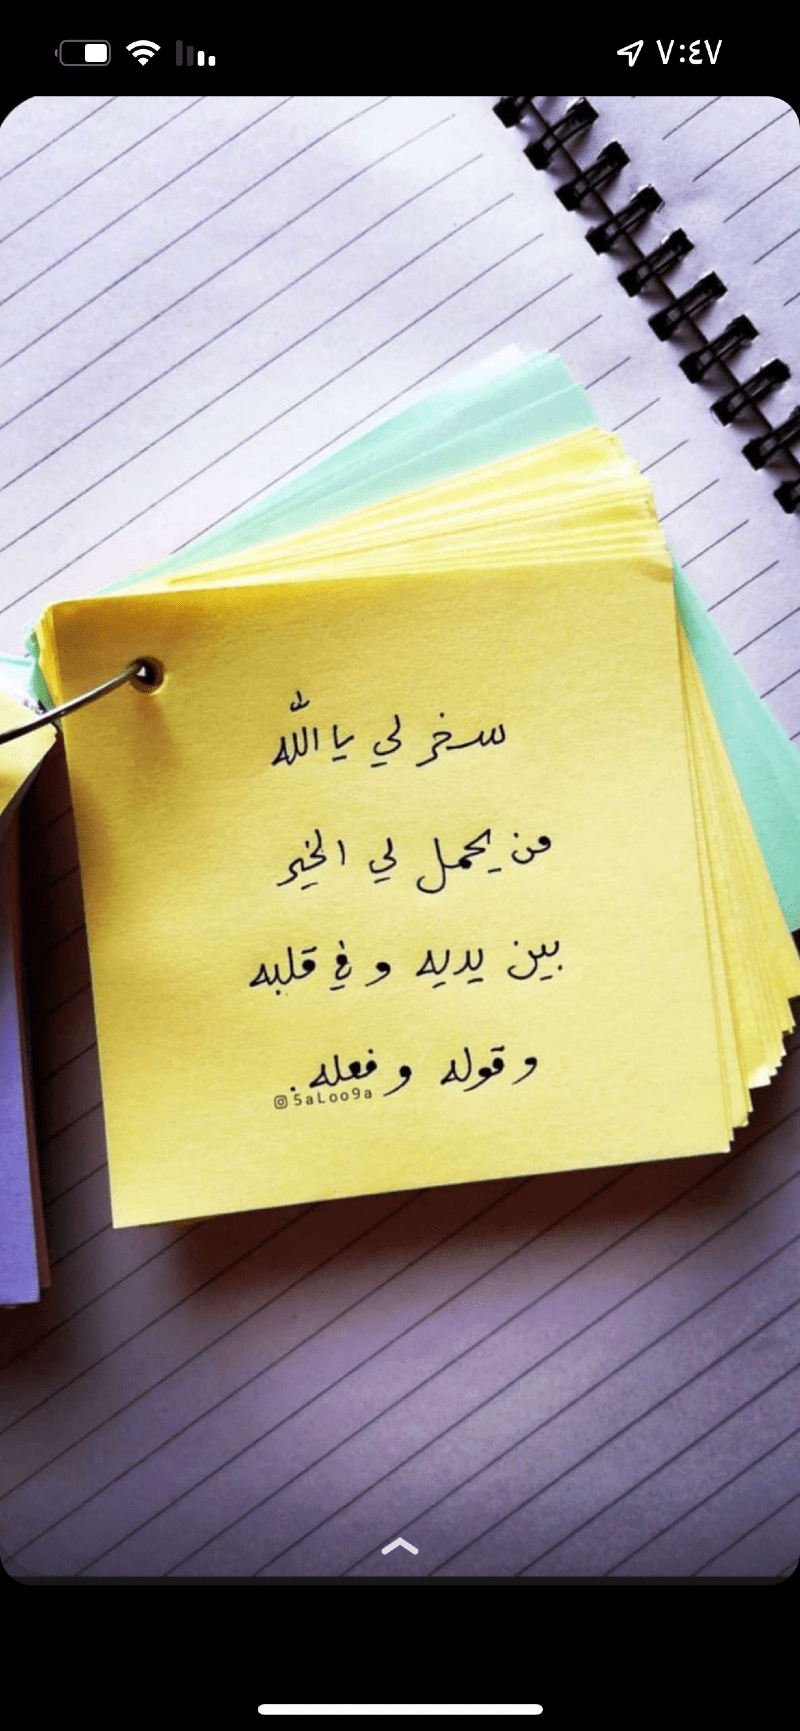 ٧:٤٧
سخر لي يا الله
من يحمل لي الخير
بين يديه و في قلبه
و قوله و فعله .
@5aLoo9a